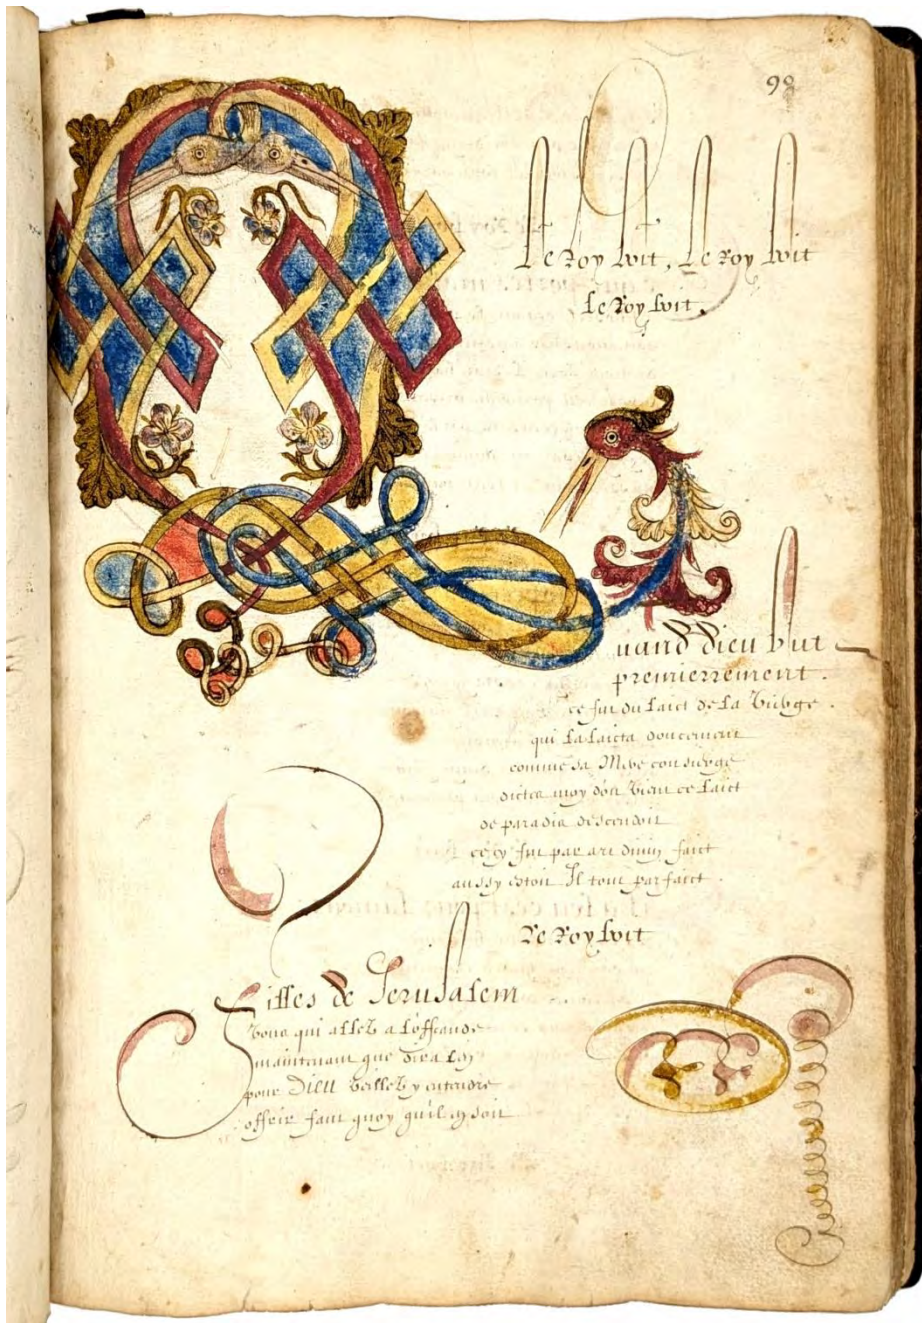 98
Le Roy boit, Le Roy boit
Le Roy boit.
Quand dieu but
premierrement.
ce fut du laict de la vierge.
qui l'alaicta doucement
comme sa Mere con vierge
dictes moy d'ou vient ce laict
de paradis descendoit
cecy fut par art divin faict
aussy estoit Il tout parfaict.
Le Roy boit
Filles de Jerusalem
vous qui allez a l'offrande
maintenant que dira l'on
pour Dieu veillez y entendre
offrir faut quoy qu'il en soit